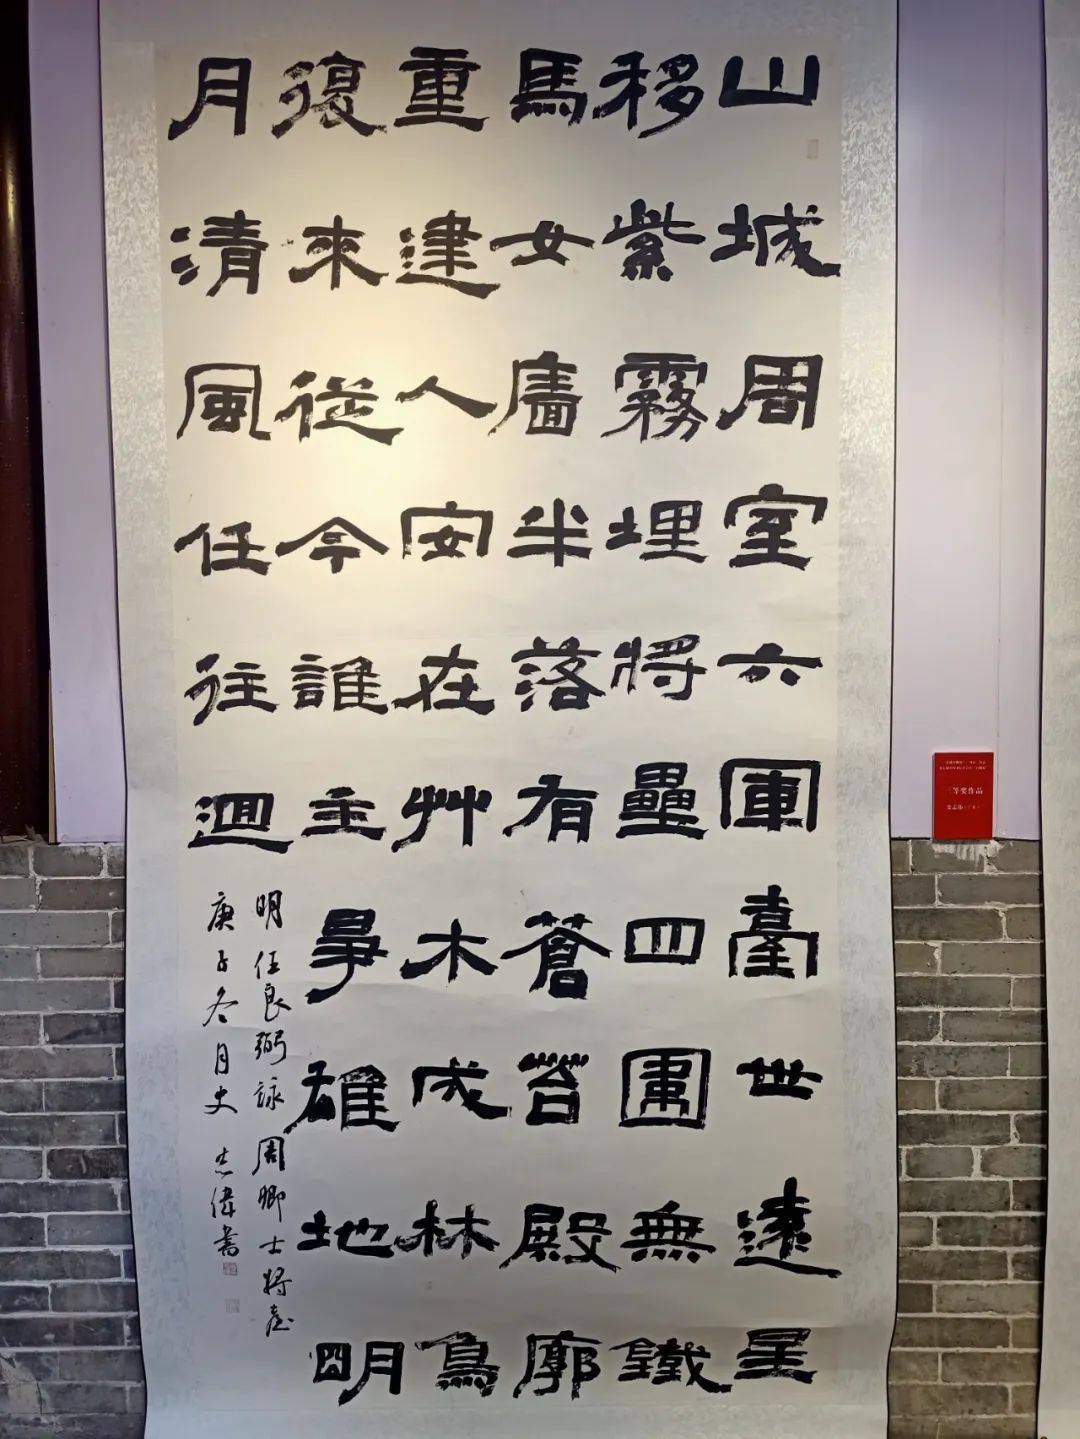 山城周室六軍臺世遠星
移紫霧埋將壘四圍無鐵
馬女廧半落有蒼苔殿廓
重建人安在艸木成林鳥
復來從今誰主爭雄地明
月清風任往迴
明任良弼詠周卿士將臺
庚子冬月史志偉書
三等奖作品